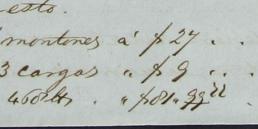 esto.
montones á $ 27 . .
3 cargas " $ 9 . .
460 lbs . " $